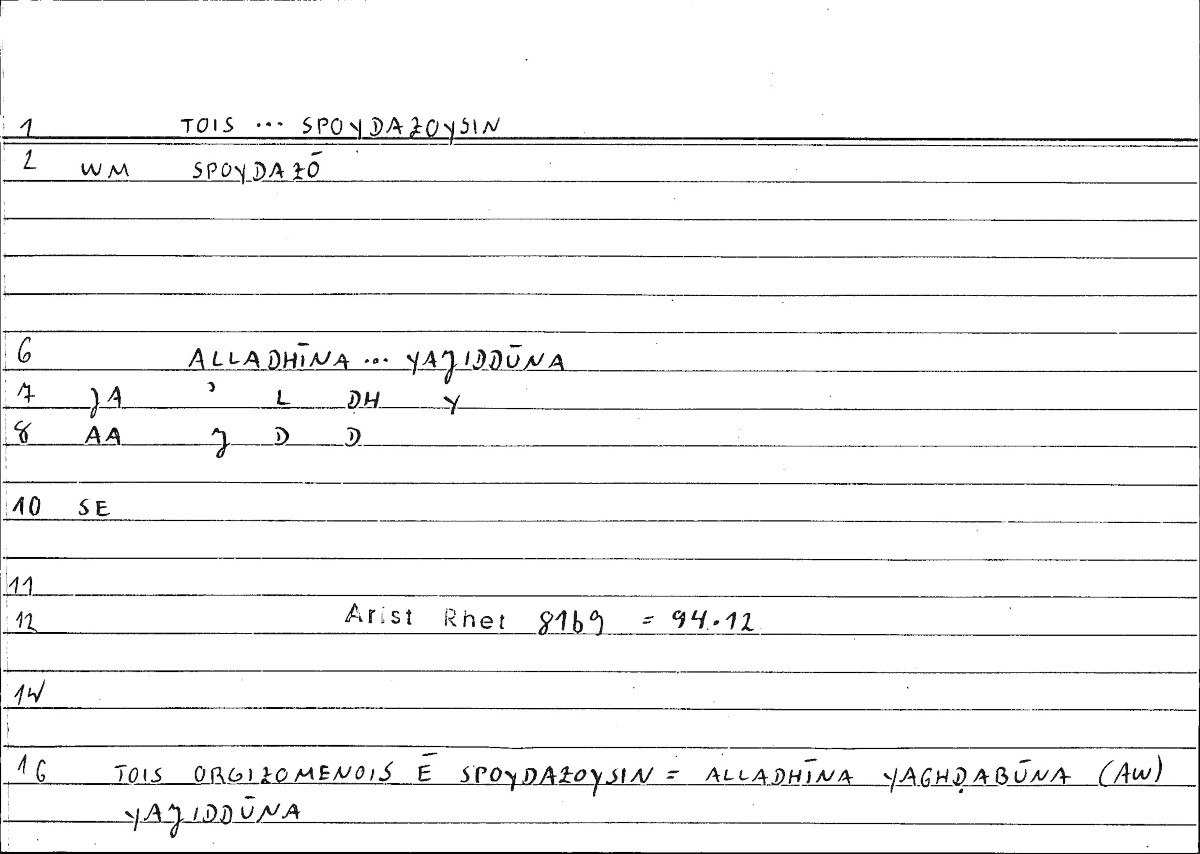 1 TOIS ... SPOYDAZOYSIN
2 WM SPOYDAZŌ
6 ALLADHĪNA ... YAJIDDŪNA
7 JA ʾ L DH Y
8 AA J D D
10 SE
11
12 Arist Rhet 81b9 = 94.12
14
16 TOIS ORGIZOMENOIS Ē SPOYDAZOYSIN = ALLADHĪNA YAGHḌABŪNA (AW)
YAJIDDŪNA